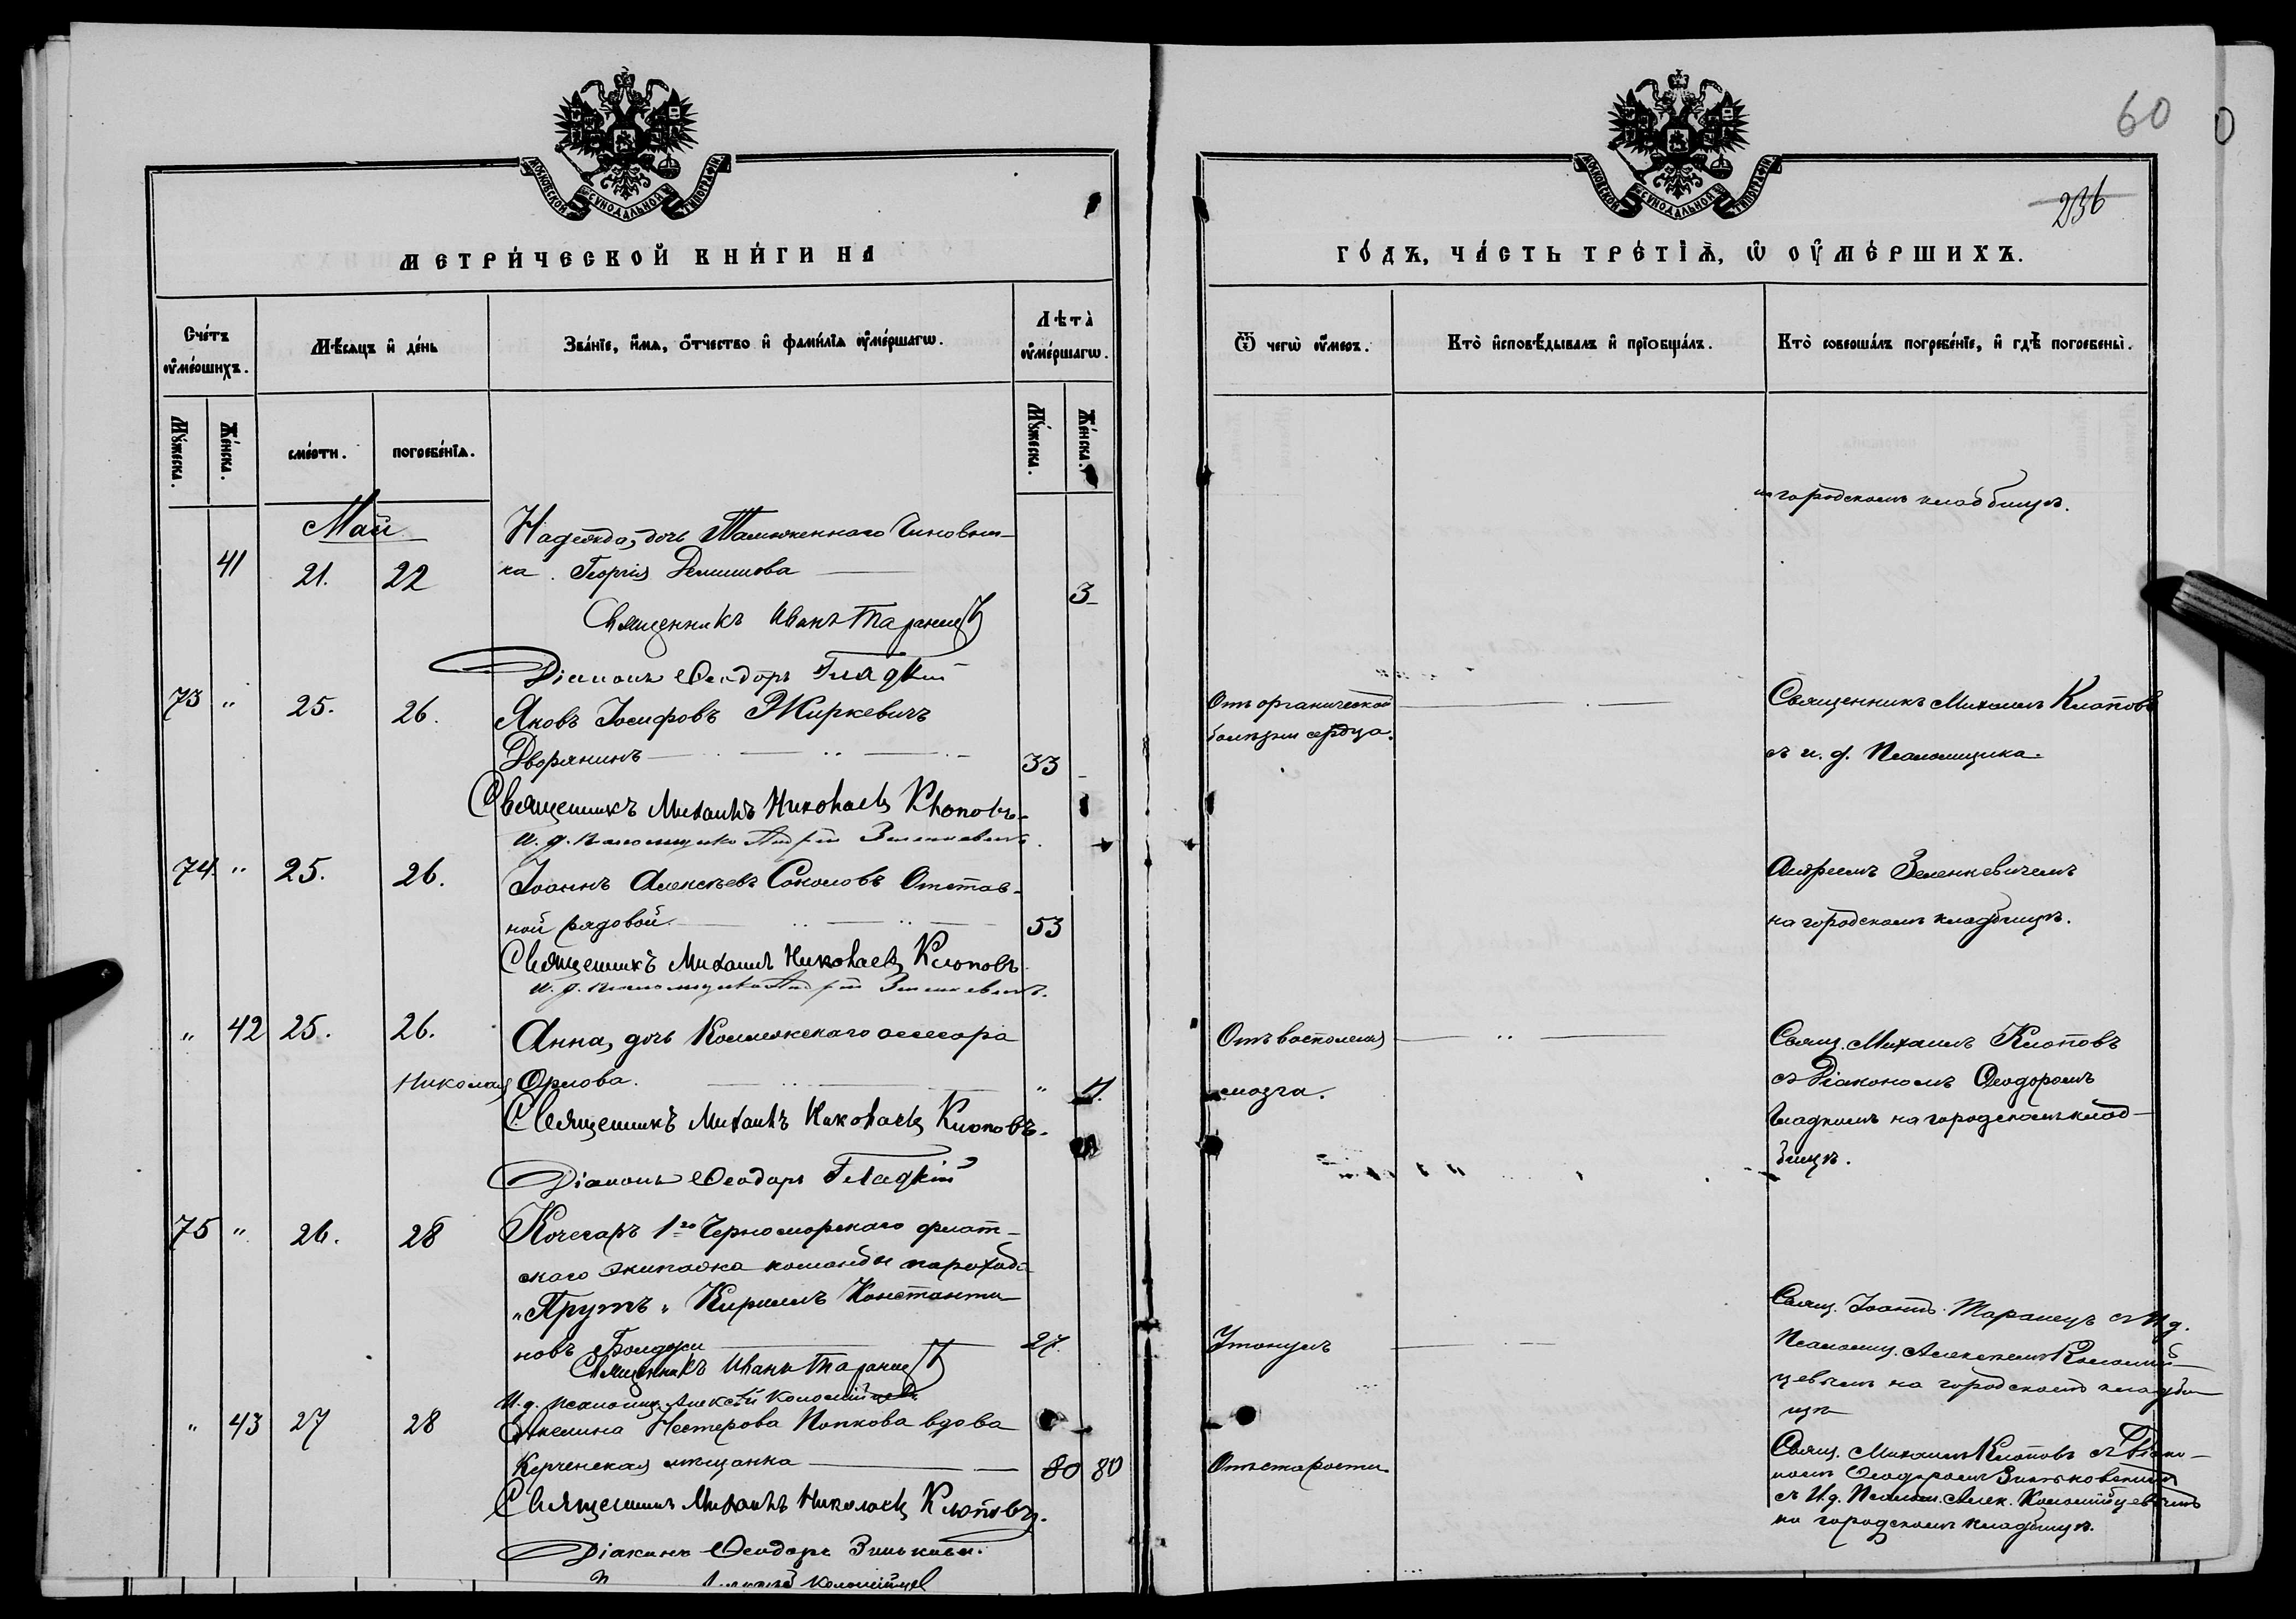 МОСКОВСКОЙ СѴНОДАЛЬНОЙ ТИПОГРАФІИ
МЕТРИ́ЧЕСКОЙ КНИ́ГИ НА
Сче́тъ ᲂу҆ме́ршихъ.
Мѣ́сяцъ и҆ де́нь
Зва́нїе, и҆́мѧ, ѻ҆́тчество и҆ фами́лїѧ ᲂу҆ме́ршагѡ.
Лѣта̀ ᲂу҆ме́ршагѡ.
Мꙋ́жеска.
Же́нска.
сме́рти.
погребе́нїѧ.
Мꙋ́жеска.
Же́нска.
Май
41 21. 22 Надежда, дочь Таможеннаго Чиновни-
ка Георгія Демишова 3
Священникъ Иванъ Таранецъ
Діаконъ Ѳеодоръ Гладкій
73 " 25. 26. Яковъ Іосифовъ Жиркевичъ
Дворянинъ 33
Священникъ Михаилъ Николаевъ Клоповъ
И. д. псаломщика Андрей Зеленкевичъ.
74. " 25. 26. Іоаннъ Алексѣевъ Соколовъ Отстав-
ной рядовой. 53
Священникъ Михаилъ Николаевъ Клоповъ
И. д. псаломщика Андрей Зеленкевичъ.
" 42 25. 26. Анна, дочь Коллежскаго ассесора
Николая Орлова. "
Священникъ Михаилъ Николаевъ Клоповъ.
Діаконъ Ѳеодоръ Гладкій
75 " 26. 28 Кочегаръ 1го Черноморскаго флот-
скаго экипажа команды парохода
"Прутъ" Кириллъ Константи
новъ 27.
Священникъ Иванъ Таранецъ
И. д. псаломщ. Алексѣй Коломійцевъ
" 43 27 28 Акелина Нестерова Попкова вдова
Керченская мѣщанка 80 80
Священникъ Михаилъ Николаевъ Клоповъ.
Діаконъ Ѳеодоръ
Коломійцев
60
236
МОСКОВСКОЙ СѴНОДАЛЬНОЙ ТИПОГРАФІИ
ГО́ДЪ, ЧА́СТЬ ТРЕ́ТІѦ, Ѡ҆ ОУ҆МЕ́РШИХЪ.
Ѿ чегѡ̀ ᲂу҆́меръ.
Кто̀ и҆сповѣ́дывалъ и҆ прїобща́лъ.
Кто̀ соверша́лъ погребе́нїе, и҆ гдѣ̀ погребены̀.
на городскомъ кладбищѣ.
Отъ органической
болѣзни сердца.
Священникъ Михаилъ Клоповъ
съ и. д. Псаломщика
Андреемъ Зеленкевичемъ
на городскомъ кладбищѣ.
Отъ воспаленія
мозга.
Свящ. Михаилъ Клоповъ
съ Діакономъ Ѳеодоромъ
Гладкимъ на городскомъ клад-
бищѣ.
Утонулъ
Свящ. Іоаннъ Таранецъ съ И. д.
Псаломщ. Алексѣемъ Коломій-
цевымъ на городскомъ кладби
щѣ
Отъ старости
Свящ. Михаилъ Клоповъ съ Діако-
номъ Ѳеодоромъ Зиньковскимъ
съ И. д. Псалом. Алек. Коломійцевымъ
на городскомъ кладбищѣ.